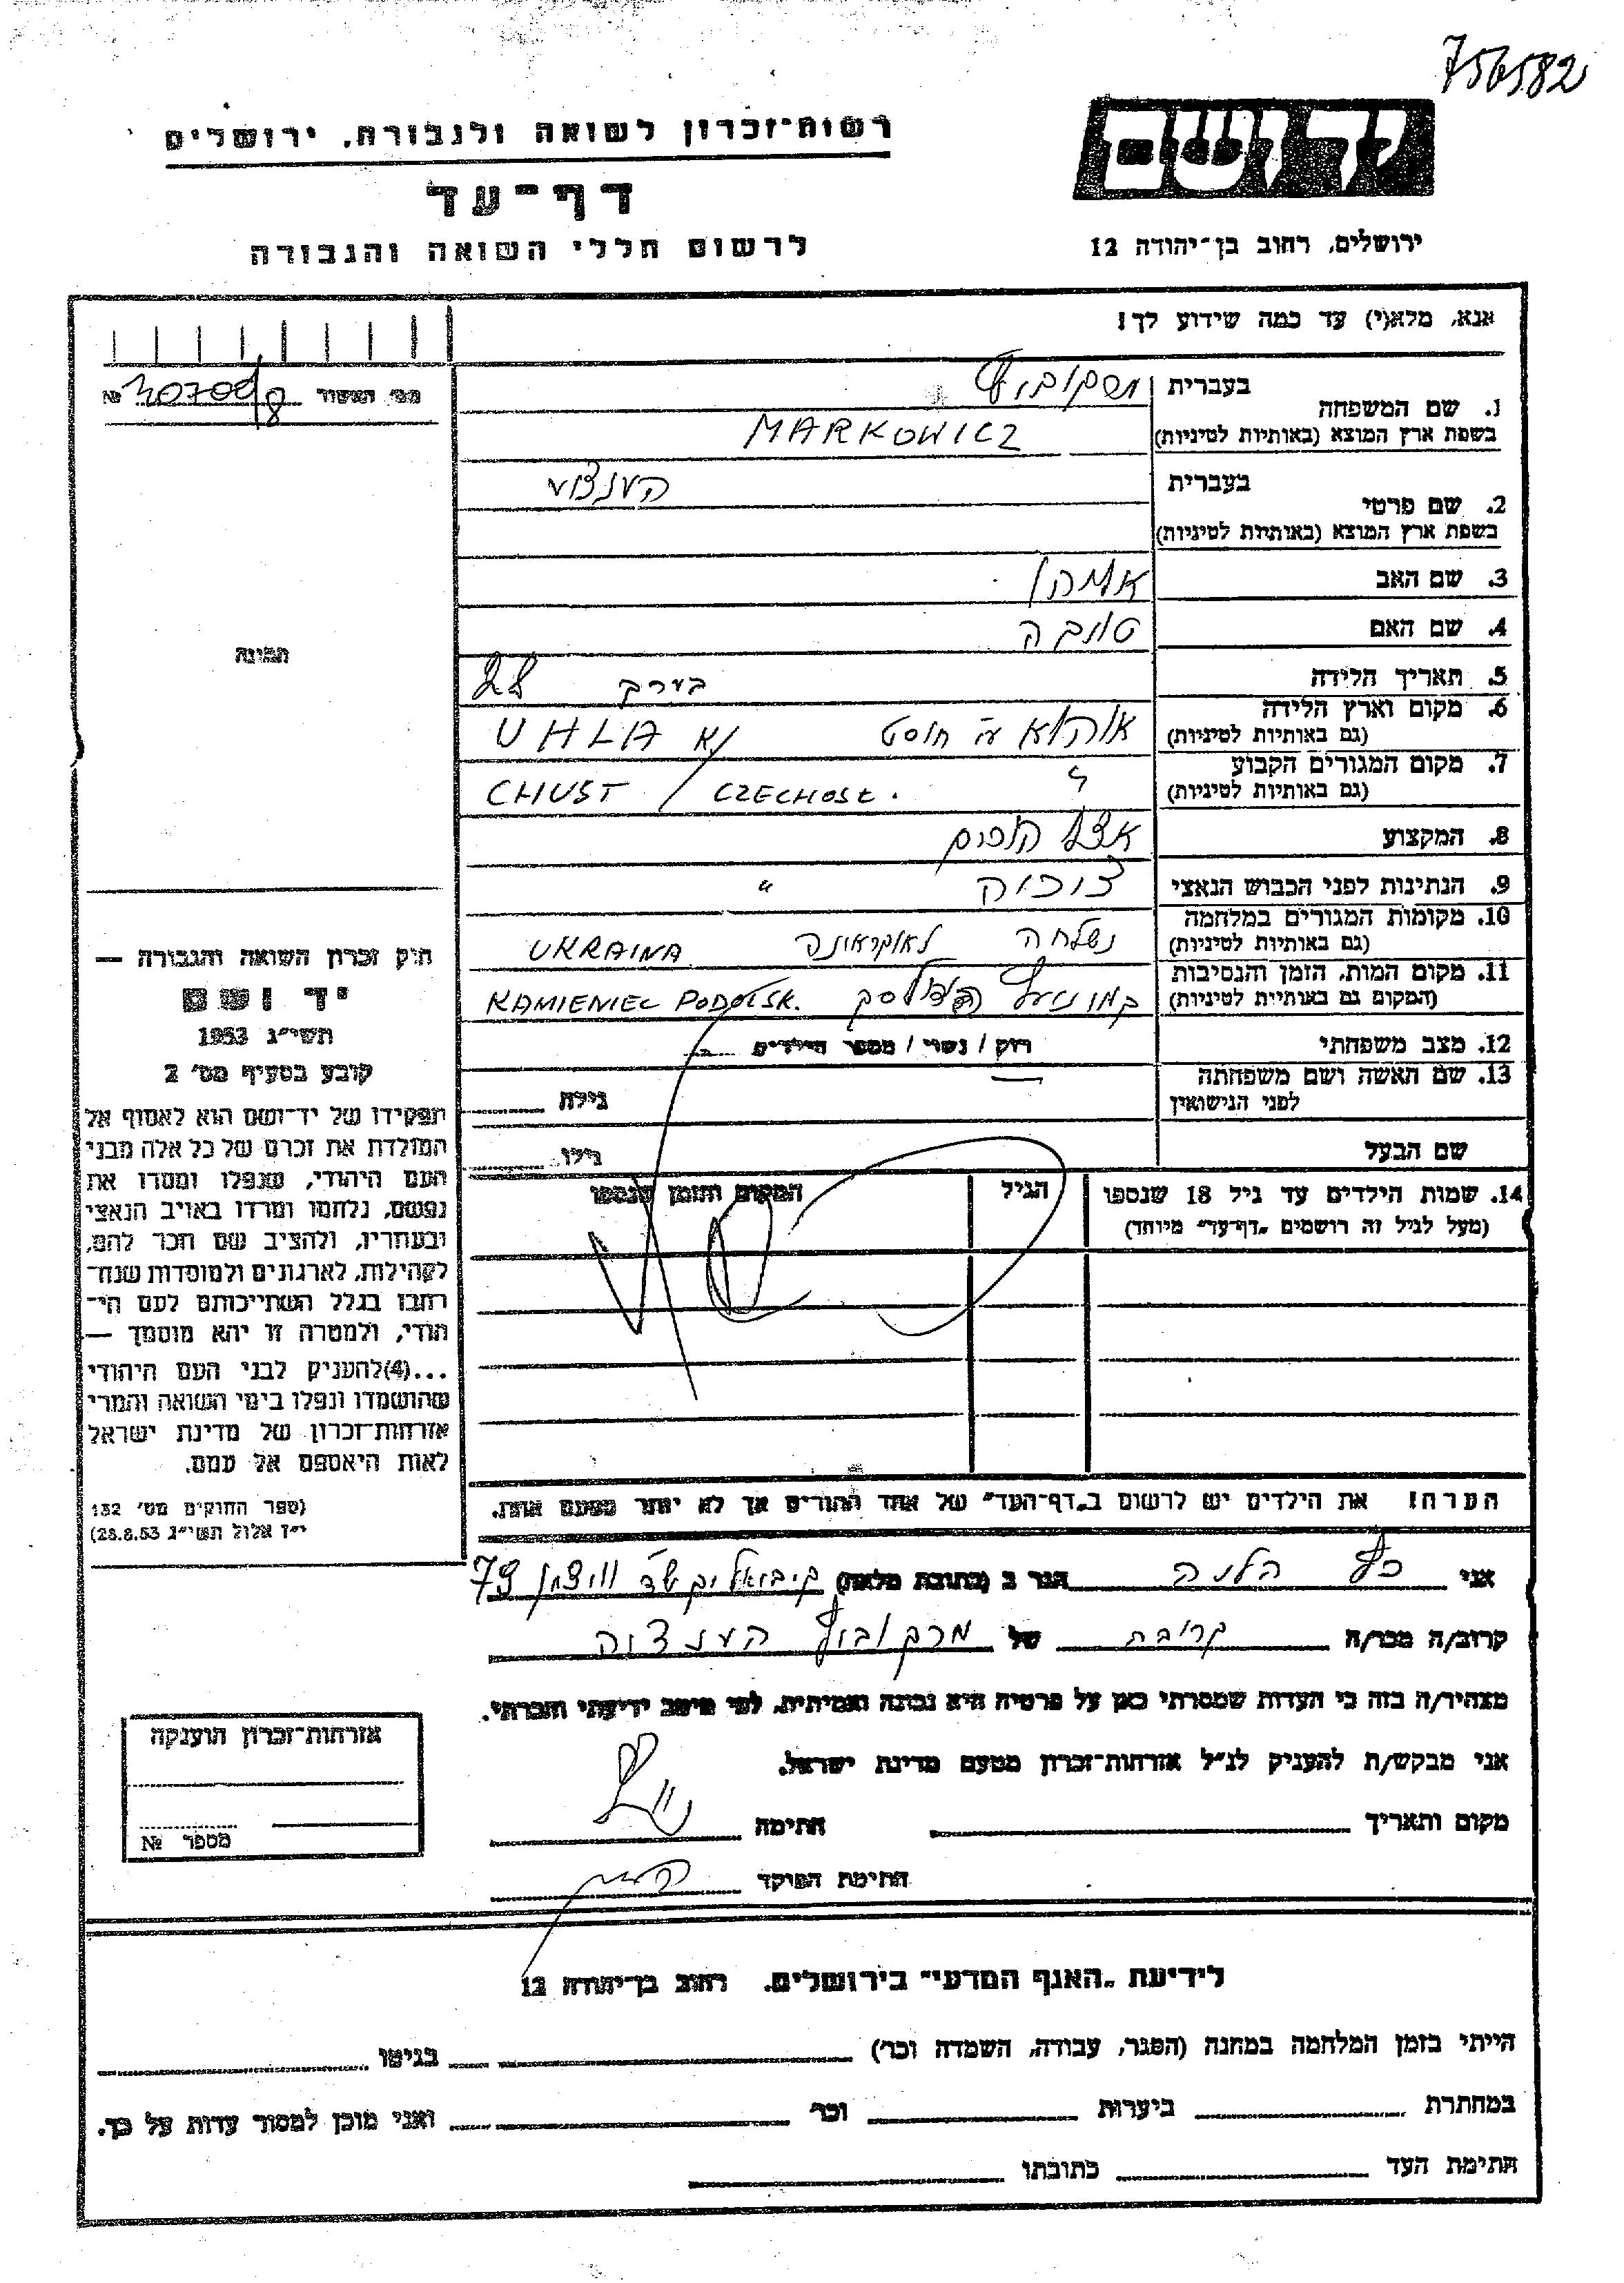 756582
רשות־זכרון לשואה ולגבורה, ירושלים
יד ושם
דף־עד
לרשום חללי השואה והגבורה
ירושלים, רחוב בן־יהודה 12
אנא, מלא(י) עד כמה שידוע לך!
מס׳ האשור №
1. שם המשפחה
בעברית מרקוביץ
בשפת ארץ המוצא (באותיות לטיניות) MARKOWICZ
2. שם פרטי
בעברית הענציע
בשפת ארץ המוצא (באותיות לטיניות)
3. שם האב
4. שם האם טובה
5. תאריך הלידה בערך
6. מקום וארץ הלידה
(גם באותיות לטיניות) אוהלא ע״י חוסט UHLA
7. מקום המגורים הקבוע
(גם באותיות לטיניות) CHUST / CZECHOSL.
8. המקצוע אצל הורים
9. הנתינות לפני הכבוש הנאצי "
10. מקומות המגורים במלחמה
(גם באותיות לטיניות) נשלחה לאוקראינה UKRAINA
11. מקום המות, הזמן והנסיבות
(המקום גם באותיות לטיניות) KAMIENIEC PODOLSK.
12. מצב משפחתי רוק / נשוי / מספר הילדים
13. שם האשה ושם משפחתה
לפני הנישואין גילה
שם הבעל גילו
14. שמות הילדים עד גיל 18 שנספו הגיל המקום והזמן שנספו
(מעל לגיל זה רושמים „דף־עד" מיוחד)
הערה! את הילדים יש לרשום ב„דף־העד" של אחד ההורים אך לא יותר מפעם אחת.
תמונה
חוק זכרון השואה והגבורה —
יד ושם
תשי״ג 1953
קובע בסעיף מס׳ 2
תפקידו של יד־ושם הוא לאסוף אל
המולדת את זכרם של כל אלה מבני
העם היהודי, שנפלו ומסרו את
נפשם, נלחמו ומרדו באויב הנאצי
ובעוזריו, ולהציב שם וזכר להם,
לקהילות, לארגונים ולמוסדות שנח־
רבו בגלל השתייכותם לעם הי־
הודי, ולמטרה זו יהא מוסמך —
...(4)להעניק לבני העם היהודי
שהושמדו ונפלו בימי השואה והמרי
אזרחות־זכרון של מדינת ישראל
לאות היאספם אל עמם.
(ספר החוקים מס׳ 132
י״ז אלול תשי״ג 28.8.53)
אני כץ הלנה הגר ב (כתובת מלאה) קיביאליק שד ויצמן 73
קרוב/ה מכר/ה קרובה של מרקוביץ הענציה
מצהיר/ה בזה כי העדות שמסרתי כאן על פרטיה היא נכונה ואמיתית, לפי מיטב ידיעתי והכרתי.
אני מבקש/ת להעניק לנ״ל אזרחות־זכרון מטעם מדינת ישראל.
מקום ותאריך חתימה
חתימת הפוקד
אזרחות־זכרון הוענקה
מספר №
לידיעת „האגף המדעי" בירושלים, רחוב בן־יהודה 12
הייתי בזמן המלחמה במחנה (הסגר, עבודה, השמדה וכר׳) בגיטו
במחתרת ביערות וכר׳ ואני מוכן למסור עדות על כך.
חתימת העד כתובתו